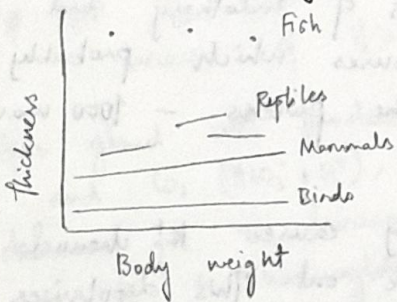 Fish
Reptiles
Mammals
Birds
Thickness
Body weight